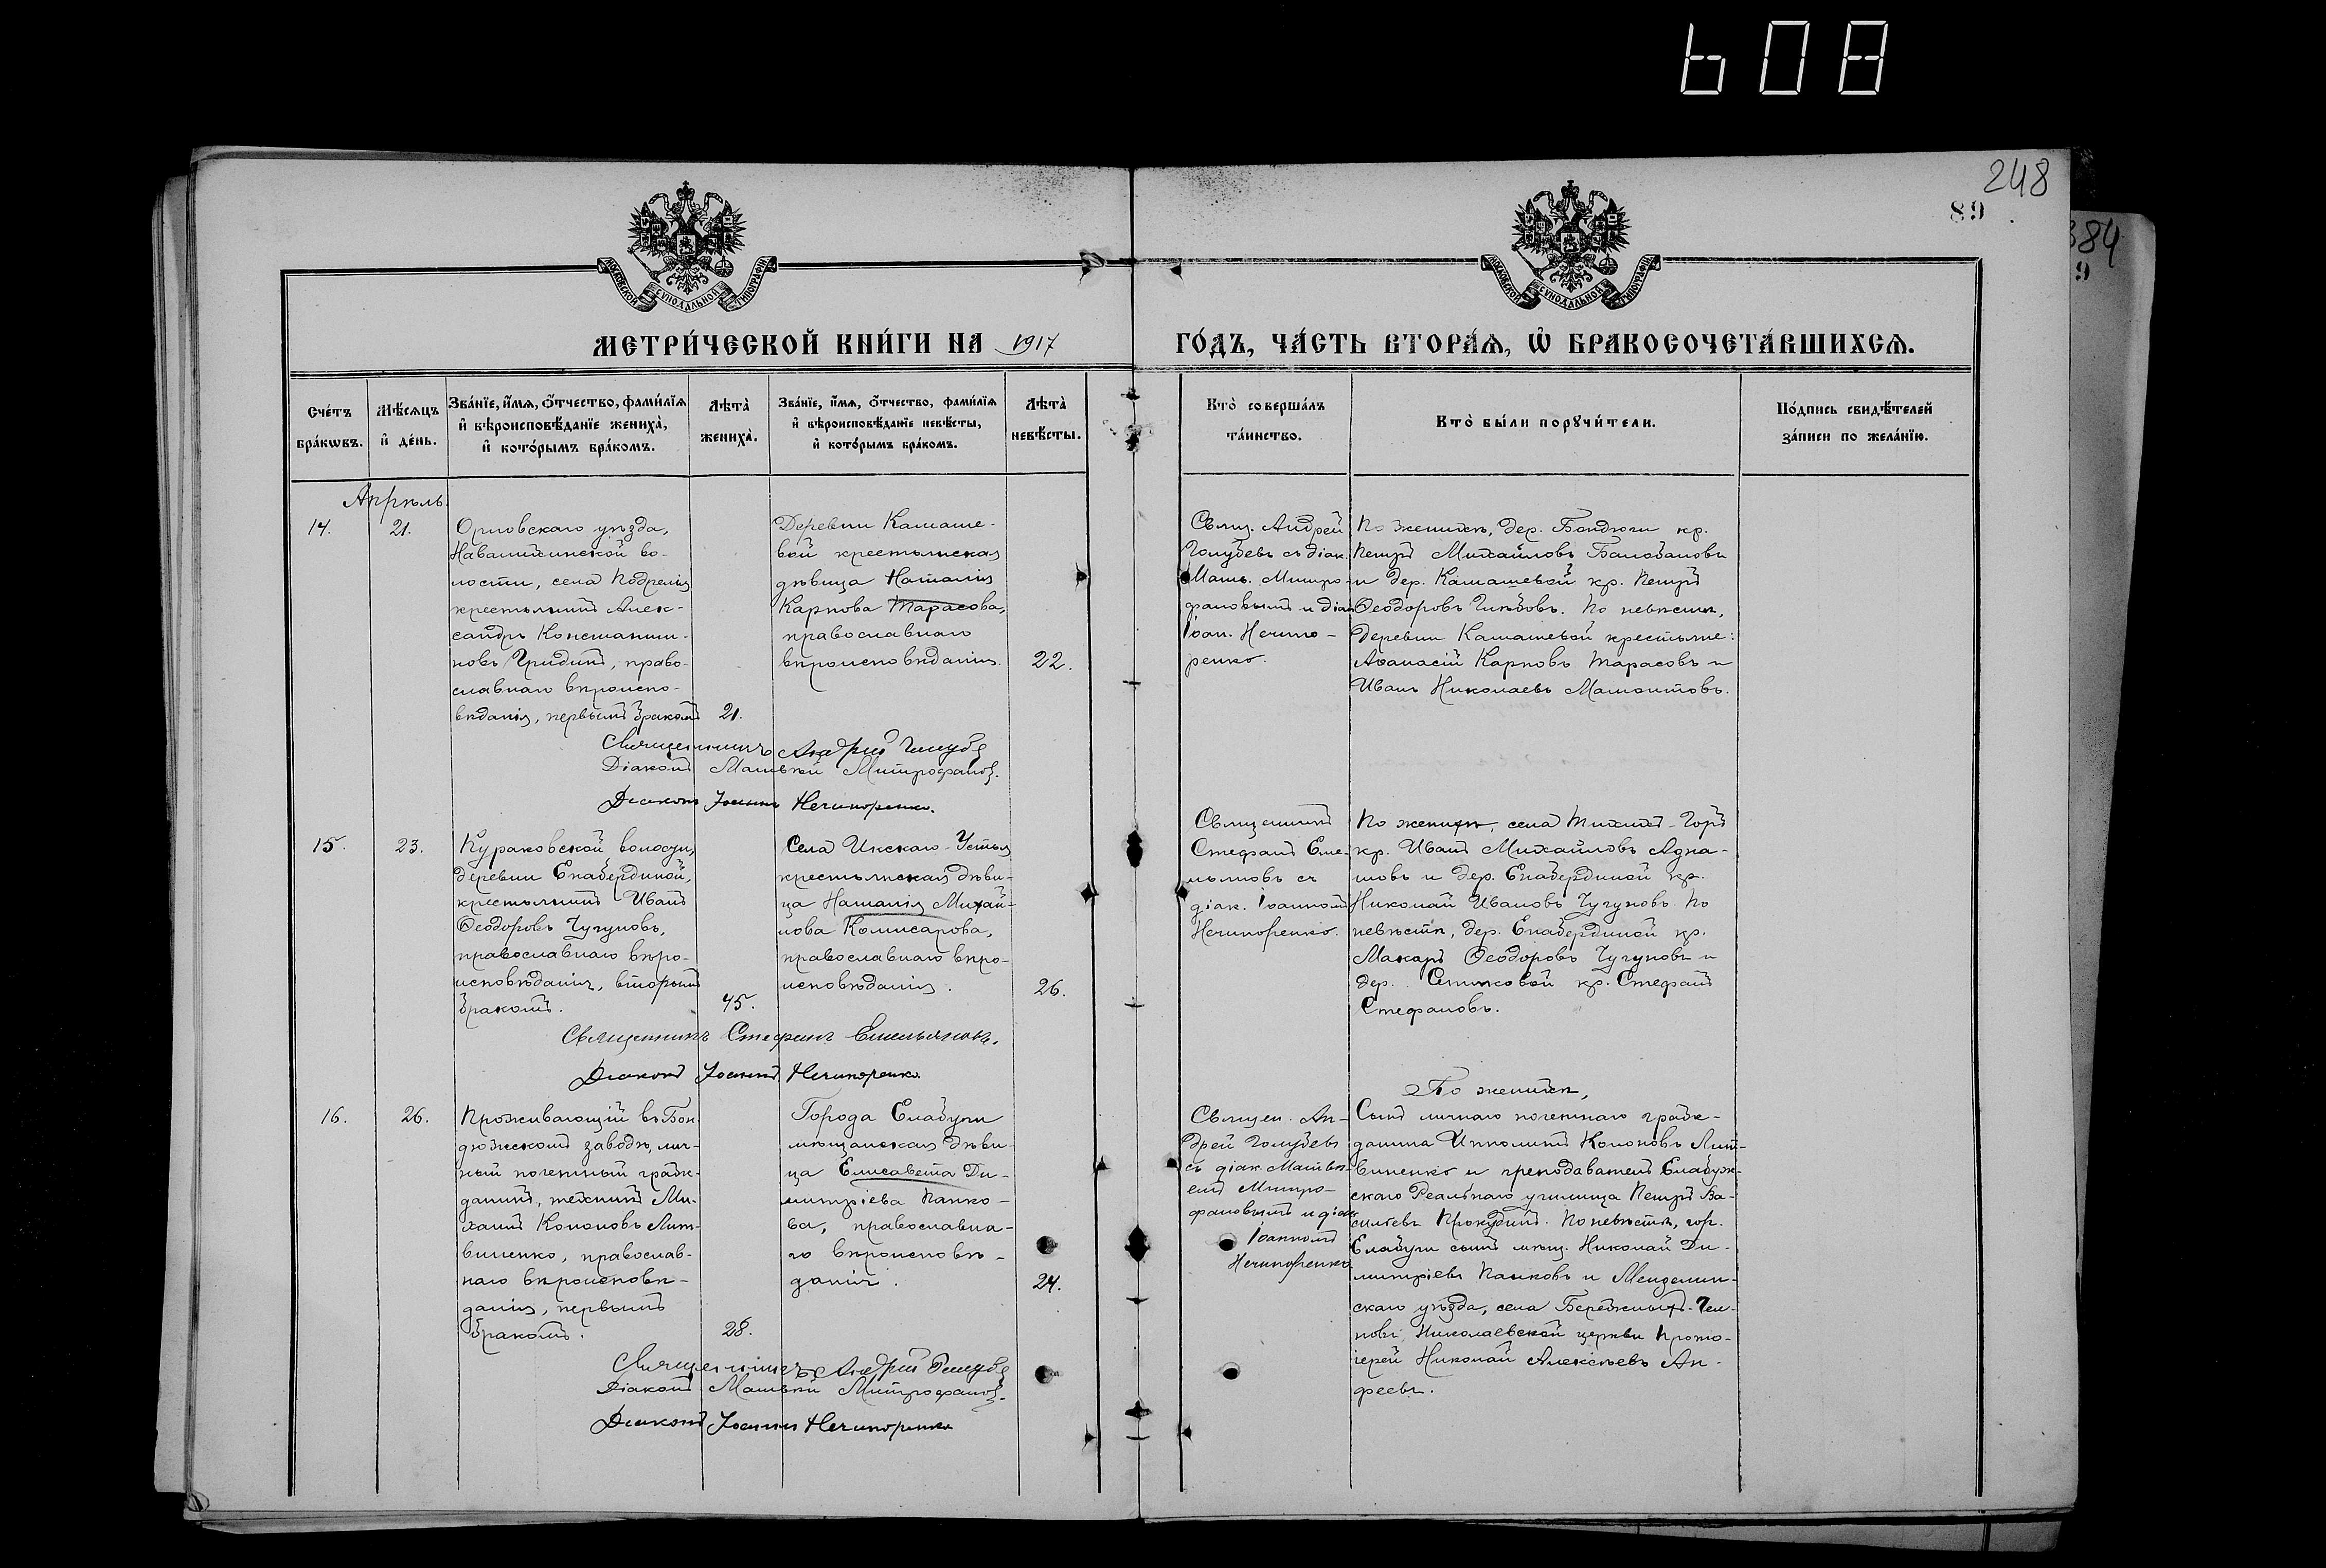 608
248
89
384
9
МОСКОВСКОЙ СѴНОДАЛЬНОЙ ТИПОГРАФІИ
МОСКОВСКОЙ СѴНОДАЛЬНОЙ ТИПОГРАФІИ
МЕТРИ́ЧЕСКОЙ КНИ́ГИ НА 1917
ГО́ДЪ, ЧА́СТЬ ВТОРА́Ѧ, Ѽ БРАКОСОЧЕТА́ВШИХСѦ.
Сче́тъ
бра́кѡвъ.
Мѣ́сѧцъ
и҆ де́нь.
Зва́нїе, и҆́мѧ, ѻ҆́тчество, фами́лїѧ
и҆ вѣроисповѣ́данїе жениха̀,
и҆ кото́рымъ бра́комъ.
Лѣта̀
жениха̀.
Зва́нїе, и҆́мѧ, ѻ҆́тчество, фами́лїѧ
и҆ вѣроисповѣ́данїе невѣ́сты,
и҆ кото́рымъ бра́комъ.
Лѣта̀
невѣ́сты.
Кто̀ соверша́лъ
та́инство.
Кто̀ бы́ли порꙋчи́тели.
По́дпись свидѣ́телей
за́писи по жела́нїю.
Апрѣль.
14.
21.
Орловскаго уѣзда,
Навалихинской во-
лости, села Подрелія
крестьянинъ Алек-
сандръ Константи-
новъ Гридинъ, право-
славнаго вѣроиспо-
вѣданія, первымъ бракомъ
21.
Деревни Камаше-
вой крестьянская
дѣвица Наталія
Карпова Тарасова,
православнаго
вѣроисповѣданія.
22.
Свящ. Андрей
Голубевъ съ діак.
Матѳ. Митро-
фановымъ и діак
Іоан. Нечипо-
ренко.
По женихѣ, дер. Бондюги кр.
Петръ Михайловъ Балобановъ
и дер. Камашевой кр. Петръ
Ѳеодоровъ Глѣбовъ. По невѣстѣ,
деревни Камашевой крестьяне:
Аѳанасій Карповъ Тарасовъ и
Иванъ Николаевъ Мамонтовъ.
Священникъ Андрей Голубев
Діаконъ Матвѣй Митрофановъ.
Діаконъ Іоаннъ Нечипоренко.
15.
23.
Кураковской волости,
деревни Енабердиной,
крестьянинъ Иванъ
Ѳеодоровъ Чугуновъ,
православнаго вѣро-
исповѣданія, вторымъ
бракомъ.
45.
Села Икскаго-Устья
крестьянская дѣви-
ца Наталія Михай-
лова Комисарова,
православнаго вѣро-
исповѣданія.
26.
Священникъ
Стефанъ Еме-
льяновъ съ
діак. Іоанномъ
Нечипоренко.
По женихѣ, села Тихихъ-Горъ
кр. Иванъ Михайловъ Адна-
шовъ и дер. Енабердиной кр.
Николай Ивановъ Чугуновъ. По
невѣстѣ, дер. Енабердиной кр.
Макаръ Ѳеодоровъ Чугуновъ и
дер. кр. Стефанъ
Стефановъ.
Священникъ Стефанъ Емельяновъ.
Діаконъ Іоаннъ Нечипоренко.
16.
26.
Проживающій въ Бон-
дюжскомъ заводѣ, лич-
ный почетный граж-
данинъ, техникъ Ми-
хаилъ Кононовъ Лит-
виненко, православ-
наго вѣроисповѣ-
данія, первымъ
бракомъ.
28.
Города Елабуги
мѣщанская дѣви-
ца Елисавета Ди-
митріева Панко-
ва, православна-
го вѣроисповѣ-
данія.
24.
Священ. Ан-
дрей Голубевъ
съ діак. Матвѣ-
емъ Митро-
фановымъ и діак
Іоанномъ
Нечипоренко
По женихѣ,
Сынъ личнаго почетнаго граж-
данина Ипполитъ Кононовъ Лит-
виненко и преподаватель Елабуж-
скаго Реальнаго училища Петръ Ва-
сильевъ Прокудинъ. По невѣстѣ, гор.
Елабуги сынъ мѣщ. Николай Ди-
митріевъ Панковъ и Мензелин-
скаго уѣзда, села Бережныхъ-Чел-
новъ, Николаевской церкви прото-
іерей Николай Алексѣевъ Ан-
феевъ.
Священникъ Андрей Голубев
Діаконъ Матвѣй Митрофановъ.
Діаконъ Іоаннъ Нечипоренко